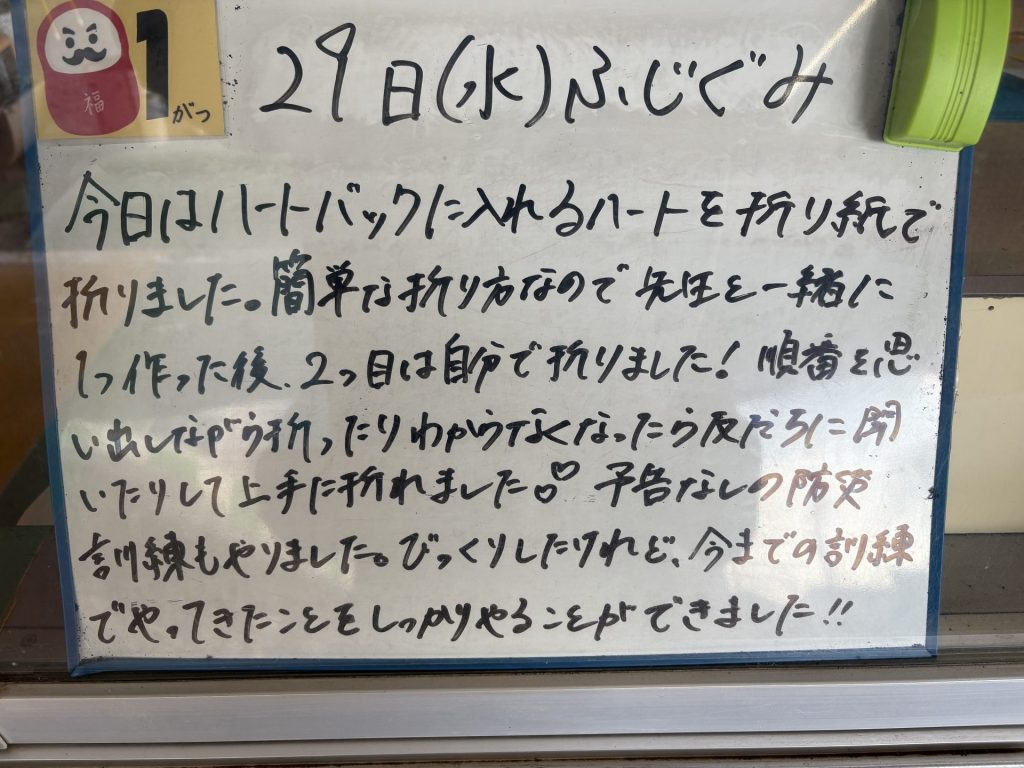 福
1がつ
29日(水)ふじぐみ
今日はハートバックに入れるハートを折り紙で
折りました。簡単な折り方なので先生と一緒に
1つ作った後、2つ目は自分で折りました!順番を思
い出しながら折ったりわからなくなったら友だちに聞
いたりして上手に折れました♡ 予告なしの防災
訓練もやりました。びっくりしたけれど、今までの訓練
でやってきたことをしっかりやることができました!!